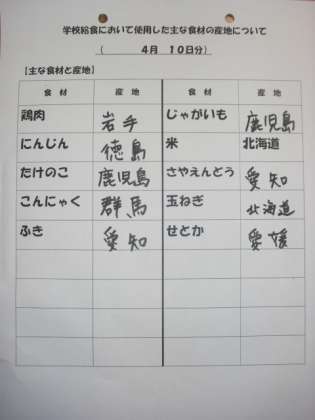 学校給食において使用した主な食材の産地について
( 4月 10日分)
【主な食材と産地】
食材 産地 食材 産地
鶏肉 岩手 じゃがいも 鹿児島
にんじん 徳島 米 北海道
たけのこ 鹿児島 さやえんどう 愛知
こんにゃく 群馬 玉ねぎ 北海道
ふき 愛知 せとか 愛媛